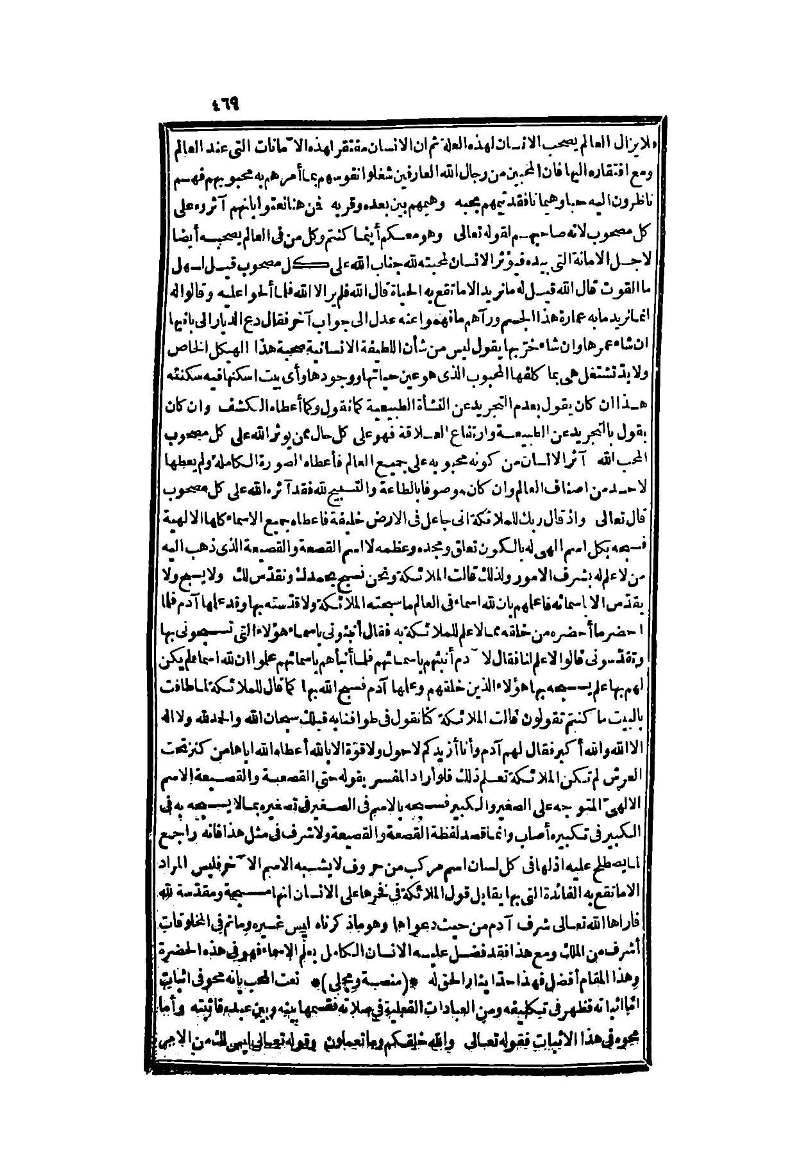 ٤٦٩
فلا يزال العالم يصحب الانسان لهذه العلة ثم ان الانسان مفتقر لهذه الامانات التى عند العالم
ومع افتقاره اليها فان المحبين من رجال الله العارفين شغلوا نفوسهم بما أمرهم به محبوبهم فهم
ناظرون اليه حبا وهيمانا قد تيمهم بحبه وهيمهم بين بعده وقربه فمن هنا نعتوا بانهم آثروه على
كل مصحوب لانه صاحبهم لقوله تعالى وهو معكم أينما كنتم وكل من فى العالم يصحبه أيضا
لاجل الامانة التى بيده فيؤثر الانسان لمحبته لله جناب الله على كل مصحوب قيل لسهل
ما القوت قال الله قيل له ما نريد الا ما تقع به الحياة قال الله فلم ير الا الله فلما ألحوا عليه وقالوا له
انما نريد ما به عمارة هذا الجسم ورآهم ما فهموا عنه عدل الى جواب آخر فقال دع الديار الى بانيها
ان شاء عمرها وان شاء خربها يقول ليس من شأن اللطيفة الانسانية صحبة هذا الهيكل الخاص
ولا بد تشتغل هى بما كلفها المحبوب الذى هو عين حياتها ووجودها وأى بيت اسكنها فيه سكنته
هذا ان كان يقول بعدم التجريد عن النشأة الطبيعية كما نقول وكما أعطاه الكشف وان كان
يقول بالتجريد عن الطبيعة وارتفاع العلاقة فهو على كل حال ممن يوثر الله على كل مصحوب
المحب الله آثر الانسان من كونه محبوبه على جميع العالم فأعطاه الصورة الكاملة ولم يعطها
لاحد من اصناف العالم وان كان موصوفا بالطاعة والتسبيح لله فقد آثره الله على كل مصحوب
قال تعالى واذ قال ربك للملائكة انى جاعل فى الارض خليفة فاعطاه جميع الاسماء كلها الالهية
فسبحه بكل اسم الهى له بالكون تعلق ومجده وعظمه لا اسم القصعة والقصيعة الذى ذهب اليه
من لا علم له بشرف الامور ولذلك قالت الملائكة ونحن نسبح بحمدك ونقدس لك ولا يسبح ولا
يقدس الا باسمائه فاعلهم بان لله اسماء فى العالم ما سبحته الملائكة ولا قدسته بها وقد علمها آدم فلما
احضر ما أحضره من خلقه مما لا علم للملائكة به فقال أنبئونى باسماء هؤلاء التى تسبحونى بها
وتقدسونى قالوا لا علم لنا فقال لآدم أنبئهم باسمائهم فلما أنبأهم باسمائهم علموا ان لله اسما لم يكن
لهم بها علم يسبحه بها هؤلاء الذين خلقهم وعلمها آدم فسبح الله بها كما قال للملائكة لما طافت
بالبيت ما كنتم تقولون قالت الملائكة كنا نقول فى طوافنا به قبلك سبحان الله والحمد لله ولا اله
الا الله والله أكبر فقال لهم آدم وأنا أزيدكم لا حول ولا قوة الا بالله أعطاه الله اياها من كنز تحت
العرش لم تكن الملائكة تعلم ذلك فلو أراد المفسر بقوله حتى القصعة والقصيعة الاسم
الالهى المتوجه على الصغير والكبير فسبحه بالاسم فى الصغير فى تصغيره بما لا يسبحه به فى
الكبير فى تكبيره أصاب وانما قصد لفظة القصعة والقصيعة ولا شرف فى مثل هذا فانه راجع
لما يصطلح عليه اذ لها فى كل لسان اسم مركب من حروف لا يشبه الاسم الآخر فليس المراد
الا ما تقع به الفائدة التى بها يقابل قول الملائكة فى فخرها على الانسان انها مسبحة ومقدسة لله
فاراها الله تعالى شرف آدم من حيث دعواها وهو ما ذكرناه ليس غيره وما ثم فى المخلوقات
أشرف من الملك ومع هذا فقد فضل عليه الانسان الكامل بعلم الاسماء فهو فى هذه الحضرة
وهذا المقام أفضل فهذا حد ايثار الحق له *(منصبة ومجلى)* نعت المحب بانه محو فى اثبات
اما اثباته فظهر فى تكليفه ومن العبادات الفعلية فى صلاته فقسمها بينه وبين عبده فاثبته وأما
محوه فى هذا الاثبات فقوله تعالى والله خلقكم وما تعملون وقوله تعالى ليس لك من الامر